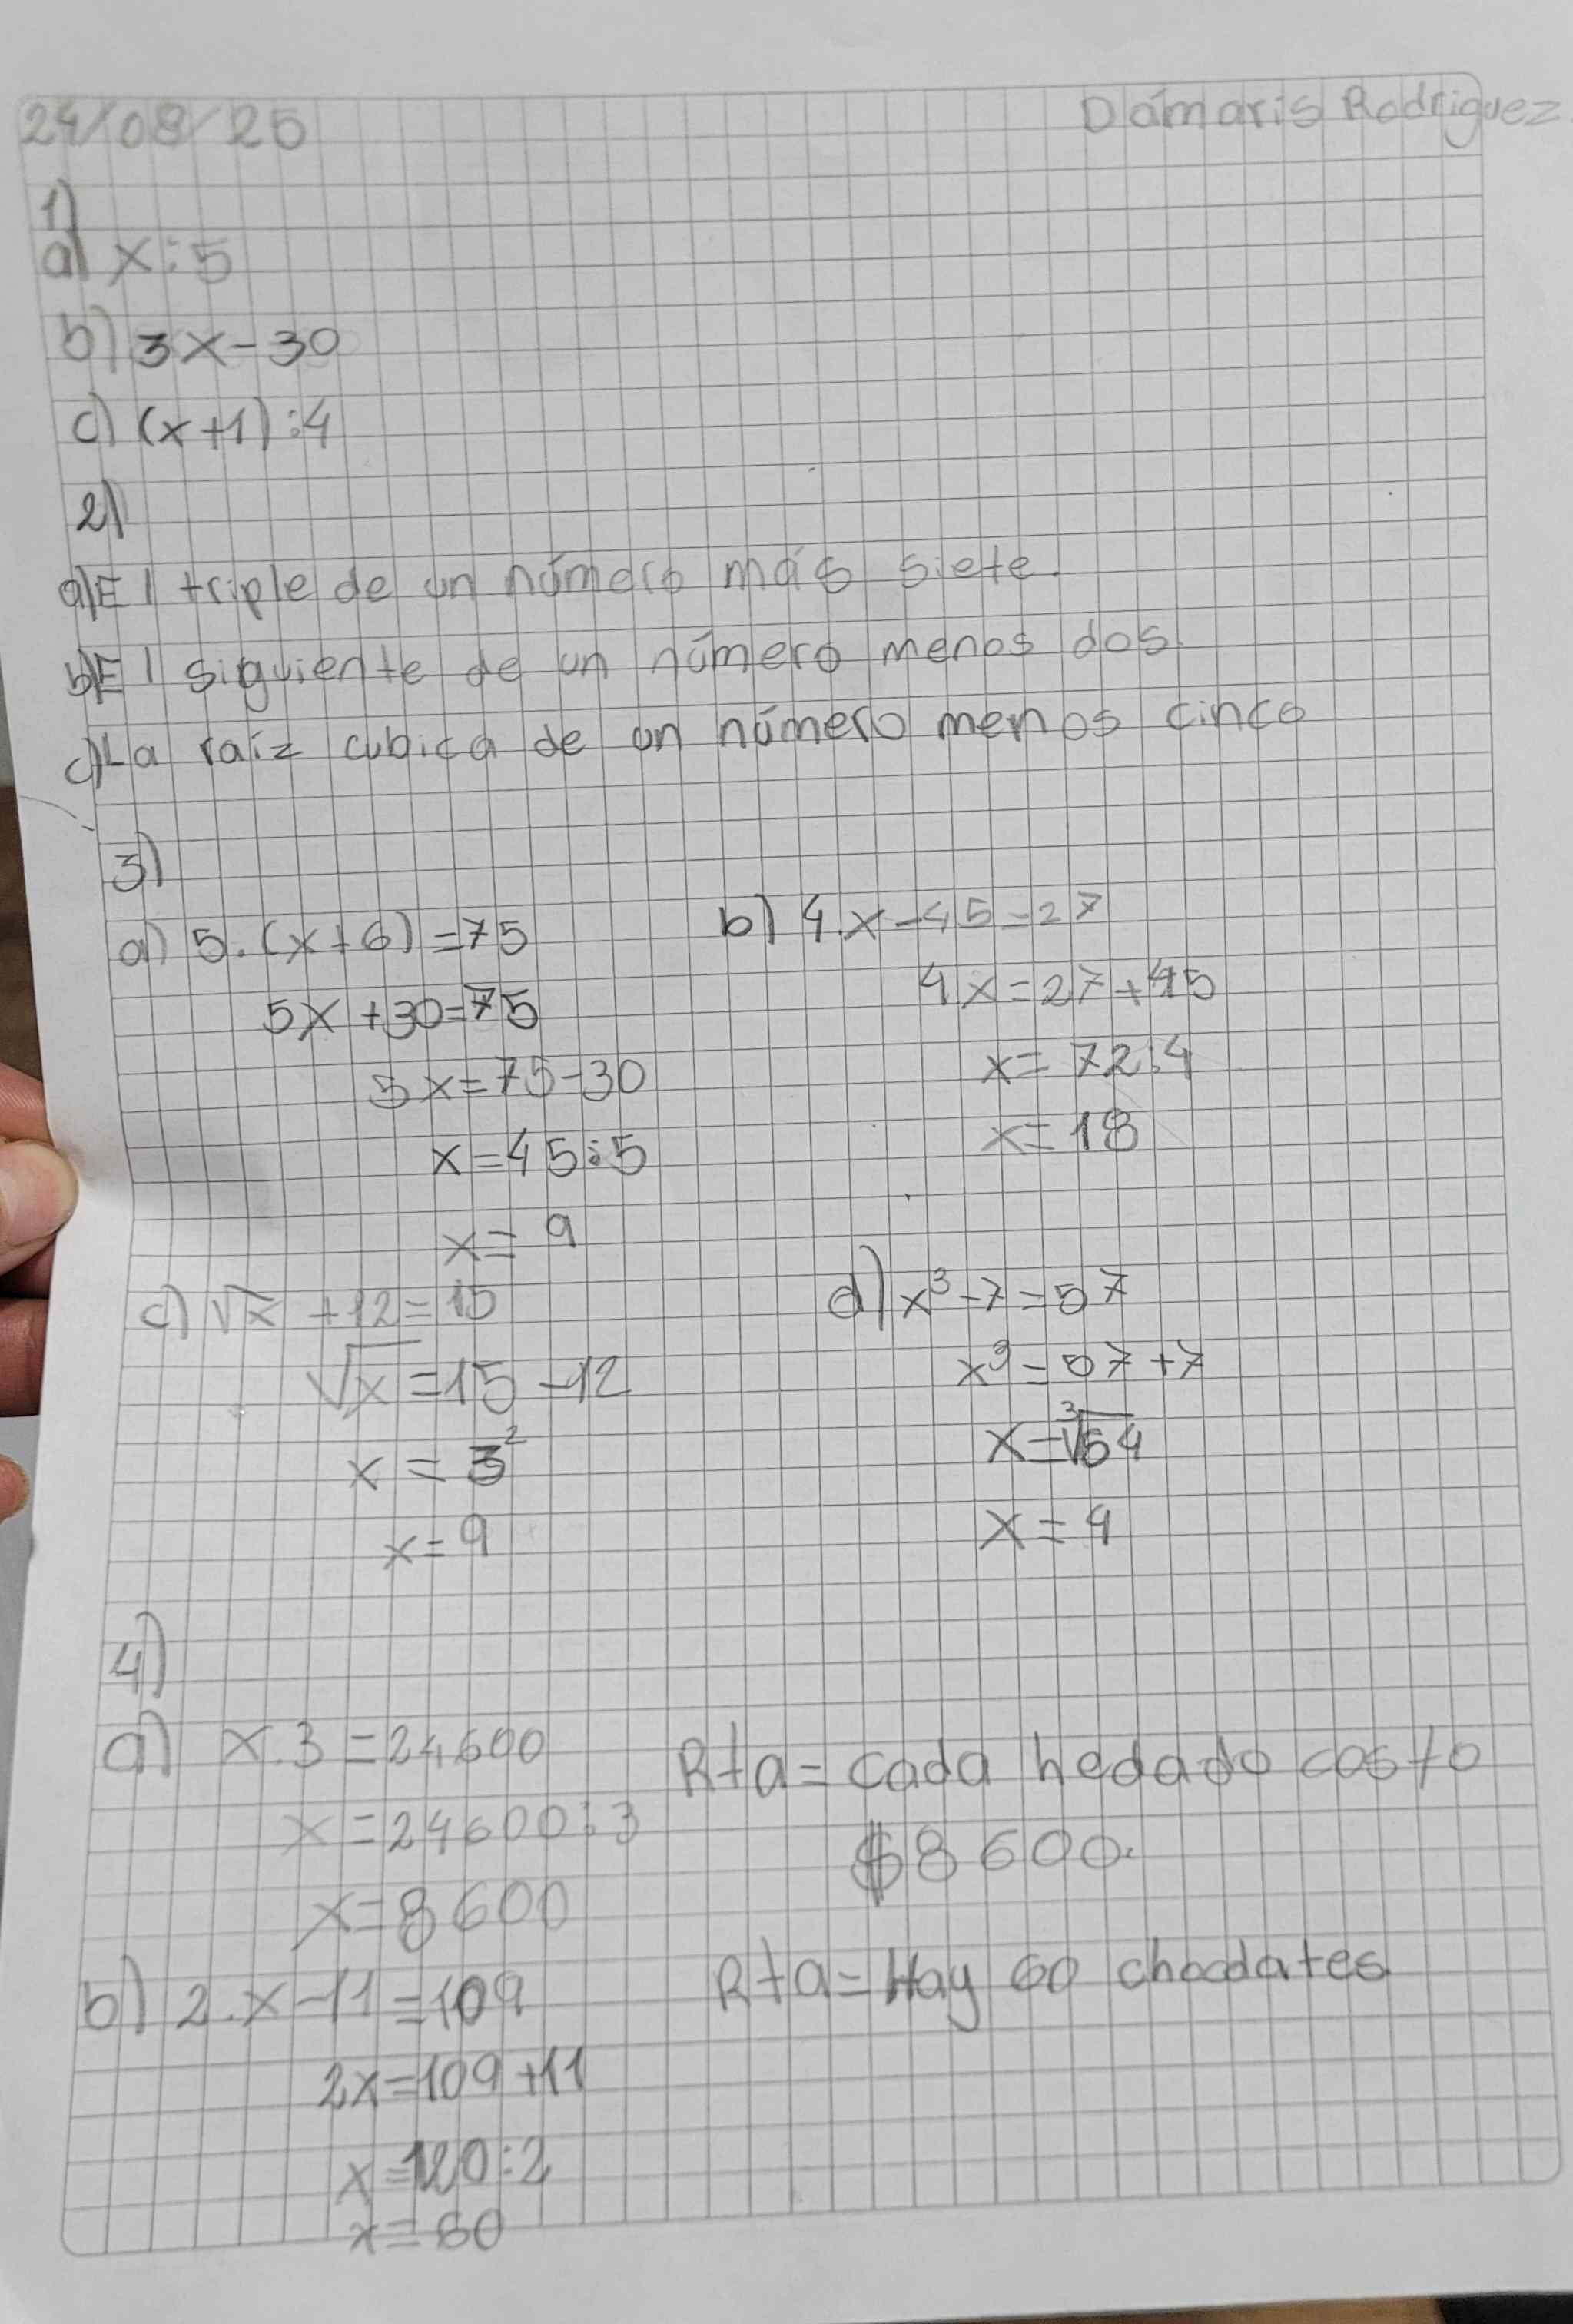 24/08/25 Dámaris Rodriguez
1)
a) x:5
b) 3x-30
c) (x+1):4
2)
a) El triple de un número más siete.
b) El siguiente de un número menos dos.
c) La raíz cubica de un número menos cinco
3)
a) 5.(x+6)=75 b) 4.x-45=27
5x+30=75 4x=27+45
5x=75-30 x=72:4
x=45:5 x=18
x=9
c) √x +12=15 d) x³-7=57
√x=15-12 x³=57+7
x=3² x=³√64
x=9 x=4
4)
a) x.3=24600 Rta= cada hedado costo
x=24600:3 $8600.
x=8600
b) 2.x-11=109 Rta= Hay 60 chocolates.
2x=109+11
x=120:2
x=60